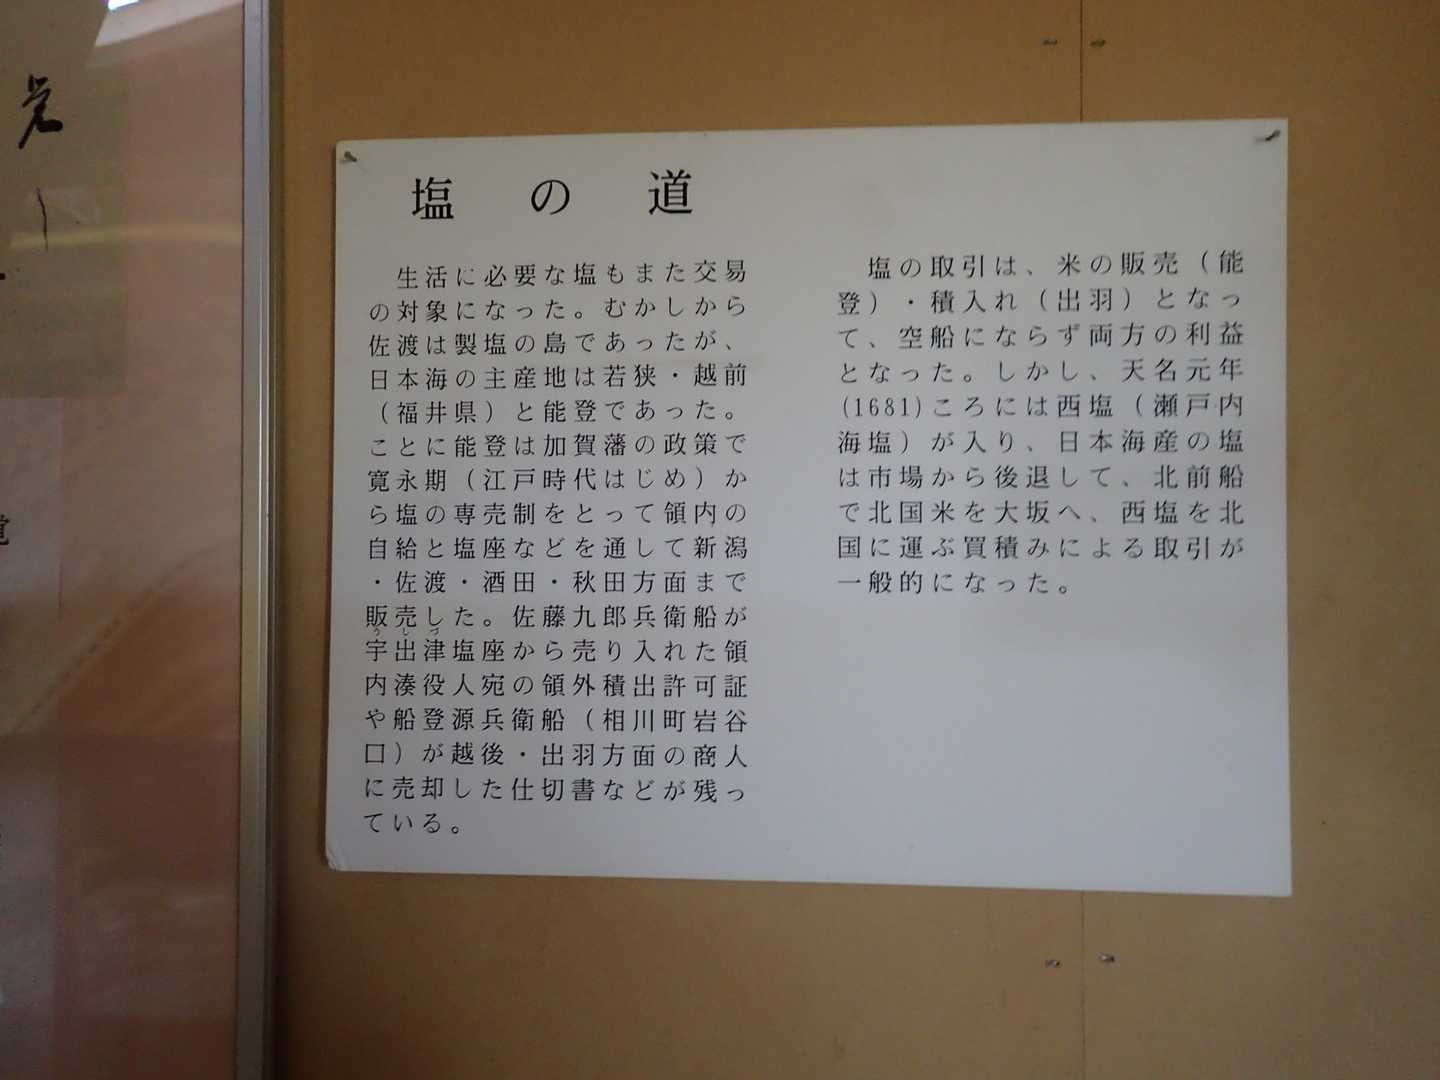 塩の道
生活に必要な塩もまた交易
の対象になった。むかしから
佐渡は製塩の島であったが、
日本海の主産地は若狭・越前
（福井県）と能登であった。
ことに能登は加賀藩の政策で
寛永期（江戸時代はじめ）か
ら塩の専売制をとって領内の
自給と塩座などを通して新潟
・佐渡・酒田・秋田方面まで
販売した。佐藤九郎兵衛船が
うしづ
宇出津塩座から売り入れた領
内湊役人宛の領外積出許可証
や船登源兵衛船（相川町岩谷
口）が越後・出羽方面の商人
に売却した仕切書などが残っ
ている。
塩の取引は、米の販売（能
登）・積入れ（出羽）となっ
て、空船にならず両方の利益
となった。しかし、天名元年
(1681)ころには西塩（瀬戸内
海塩）が入り、日本海産の塩
は市場から後退して、北前船
で北国米を大坂へ、西塩を北
国に運ぶ買積みによる取引が
一般的になった。